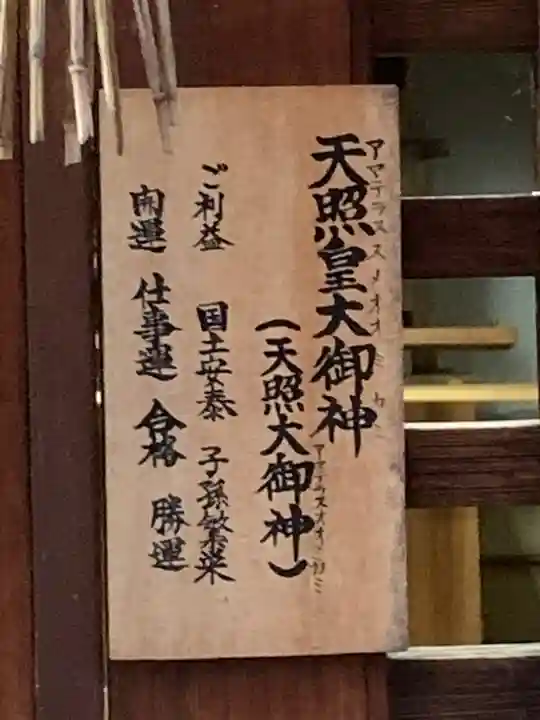 天照皇大御神
アマテラススメオオミカミ
(天照大御神)
アマテラスオオミカミ
ご利益 国土安泰 子孫繁栄
開運 仕事運 合格 勝運